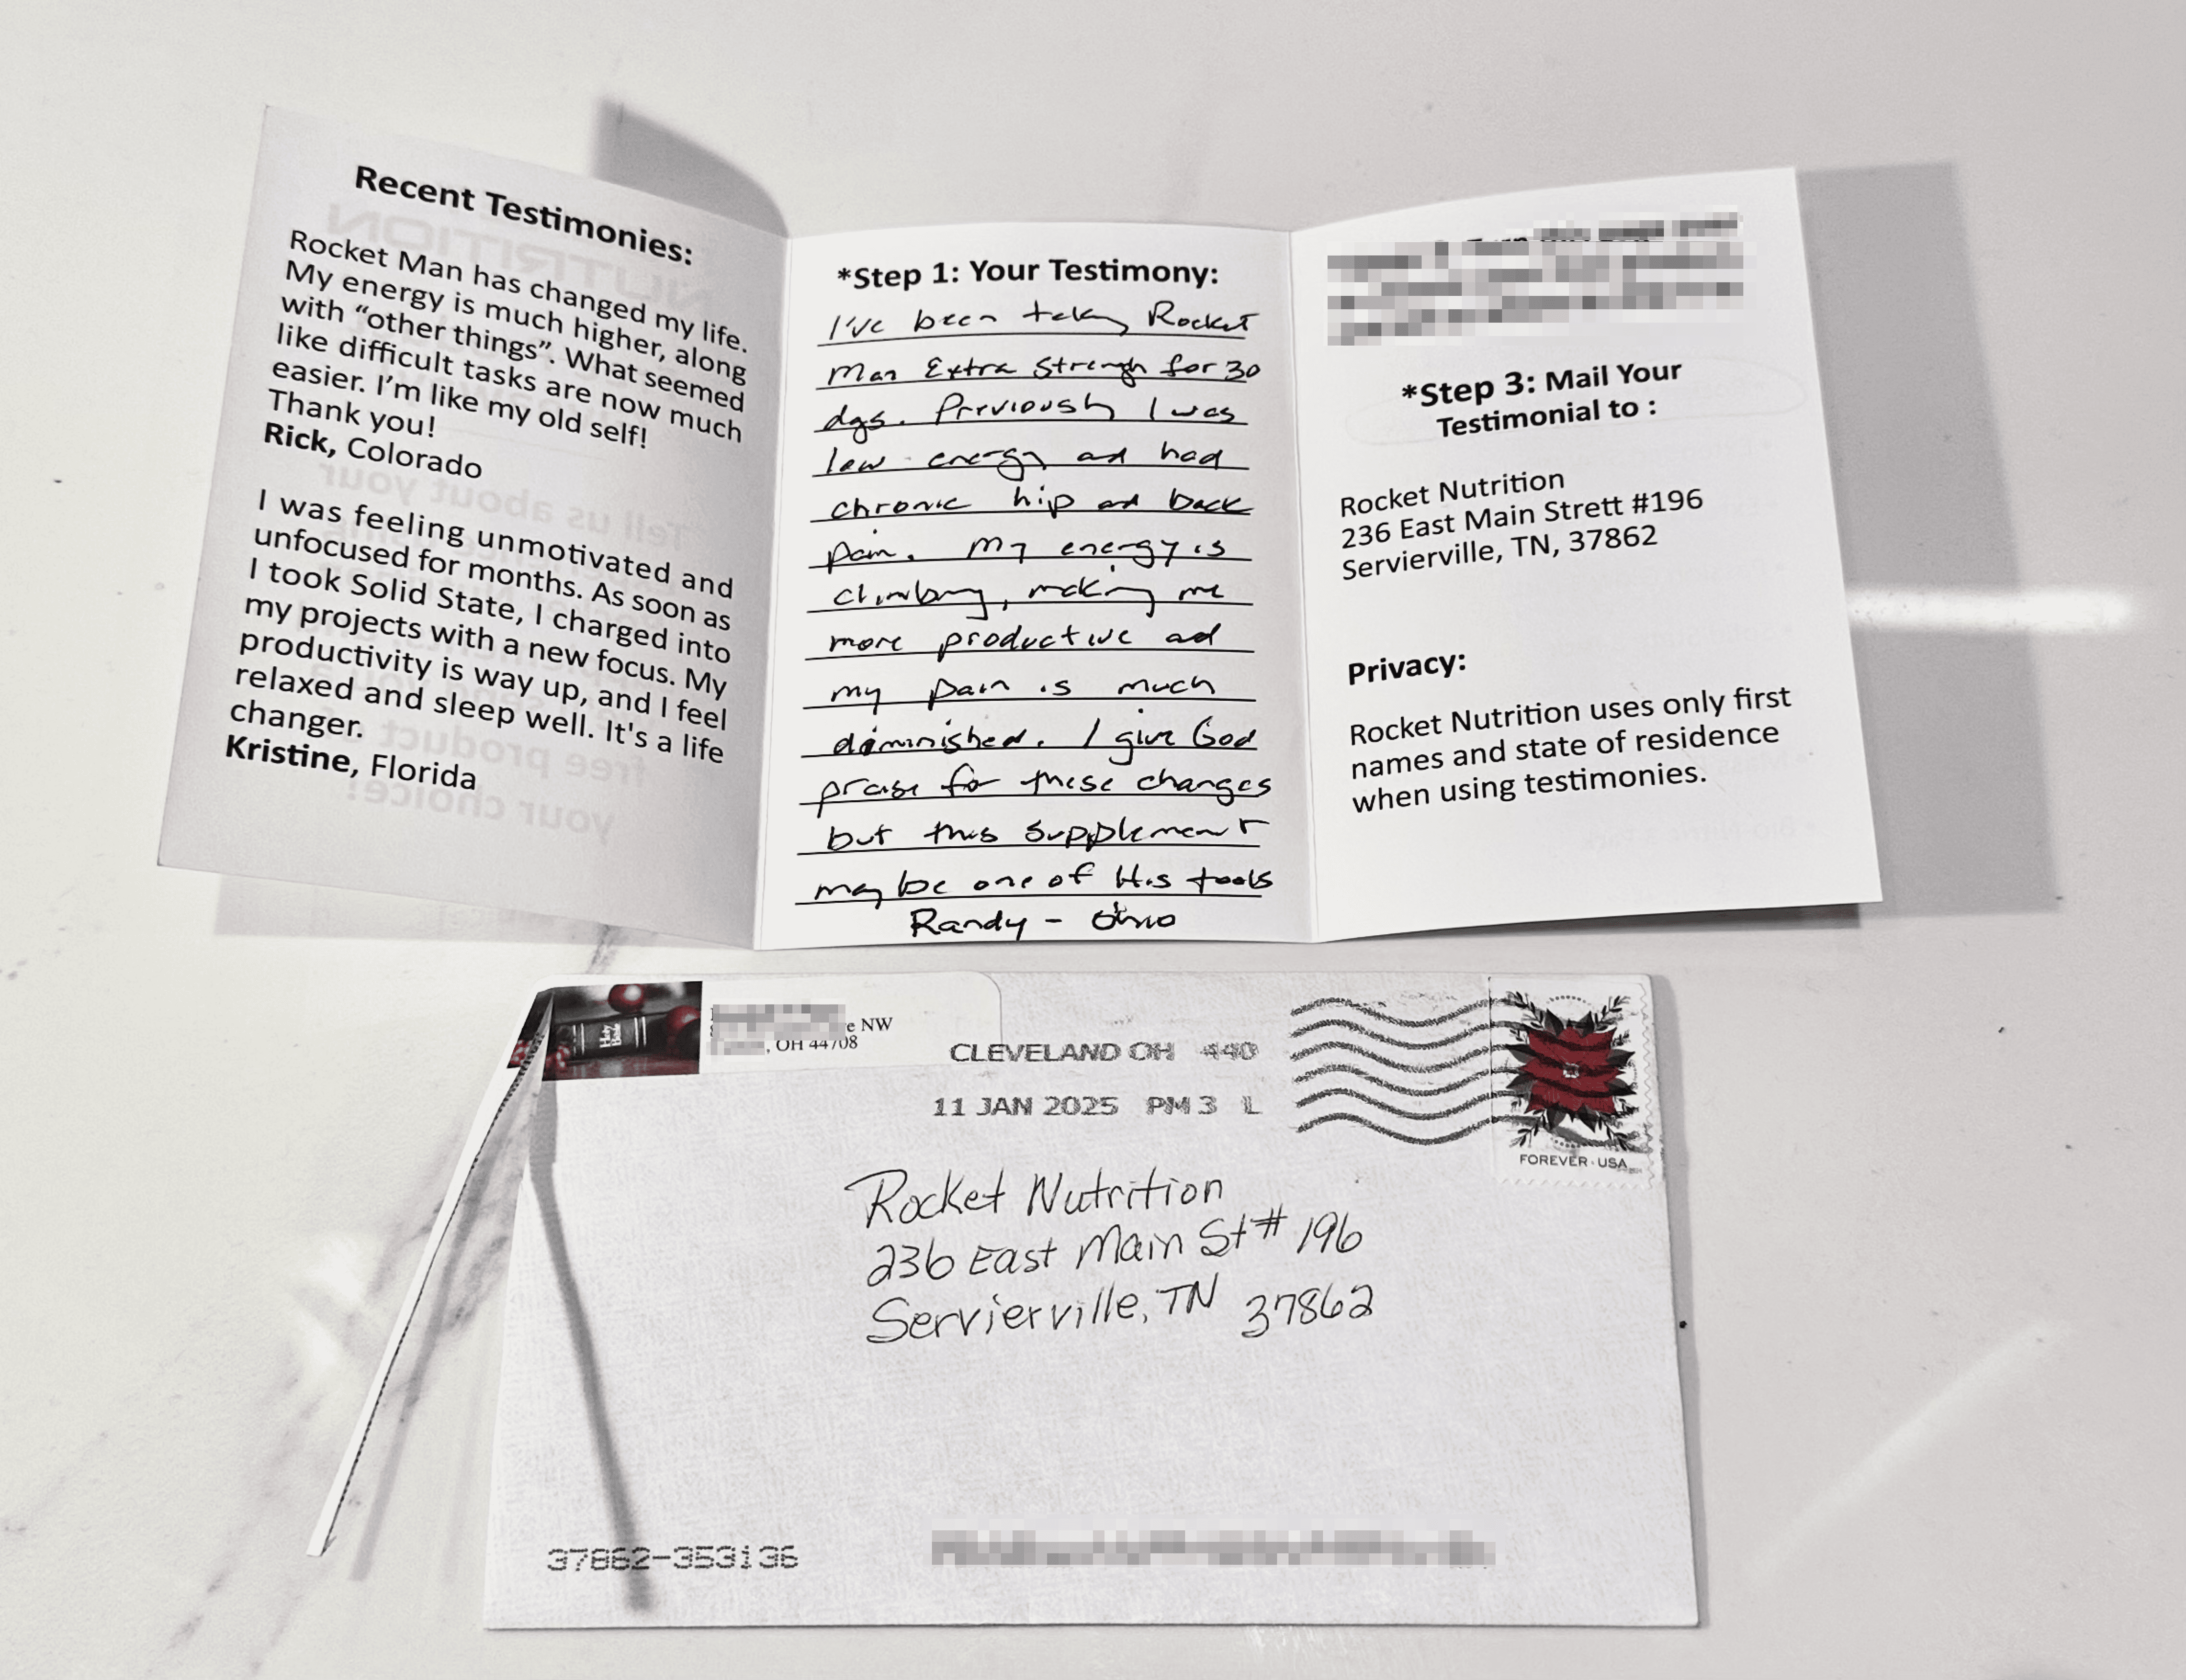 Recent Testimonies:
Rocket Man has changed my life.
My energy is much higher, along
with “other things”. What seemed
like difficult tasks are now much
easier. I’m like my old self!
Thank you!
Rick, Colorado
I was feeling unmotivated and
unfocused for months. As soon as
I took Solid State, I charged into
my projects with a new focus. My
productivity is way up, and I feel
relaxed and sleep well. It's a life
changer.
Kristine, Florida
*Step 1: Your Testimony:
I've been taking Rocket
Man Extra Strength for 30
days. Previously I was
low energy and had
chronic hip and back
pain. My energy is
climbing, making me
more productive and
my pain is much
diminished. I give God
praise for these changes
but this supplement
may be one of His tools
Randy - Ohio
*Step 3: Mail Your
Testimonial to :
Rocket Nutrition
236 East Main Strett #196
Servierville, TN, 37862
Privacy:
Rocket Nutrition uses only first
names and state of residence
when using testimonies.
Holy
Bible
e NW
, OH 44708
CLEVELAND OH 440
11 JAN 2025 PM 3 L
FOREVER USA
Rocket Nutrition
236 East Main St # 196
Servierville, TN 37862
37862-353136